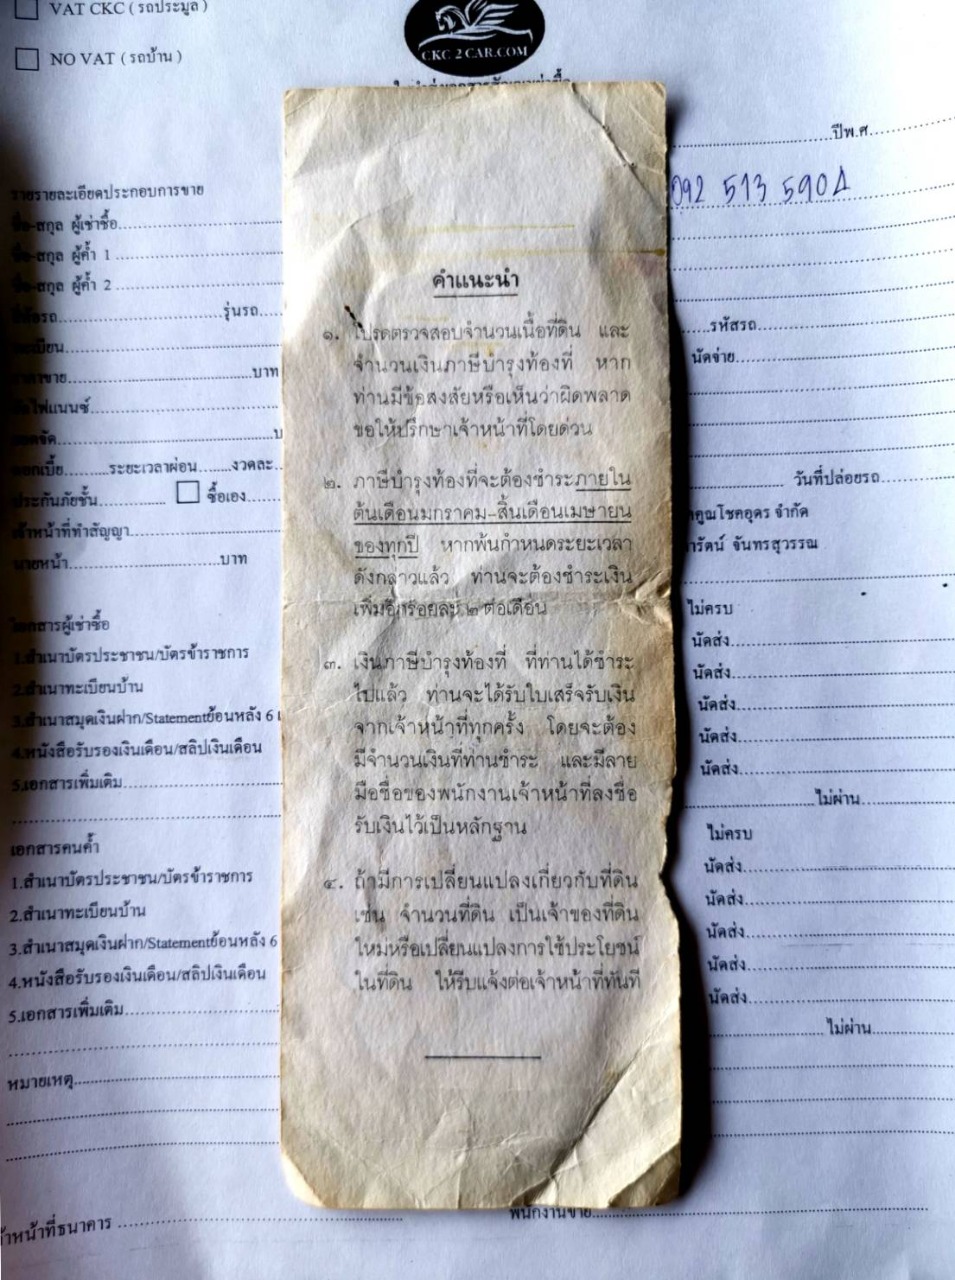 VAT CKC ( รถประมูล )
NO VAT ( รถบ้าน )
CKC 2 CAR.COM
ปีพ.ศ.
092 513 5904
รายละเอียดประกอบการขาย
ชื่อ-สกุล ผู้เช่าซื้อ
ชื่อ-สกุล ผู้ค้ำ 1
ชื่อ-สกุล ผู้ค้ำ 2
รุ่นรถ
รหัสรถ
นัดจ่าย
บาท
ระยะเวลาผ่อน
งวดละ
ประกันภัยชั้น
ซื้อเอง
วันที่ปล่อยรถ
เจ้าหน้าที่ทำสัญญา
คูณโชคอุดร จำกัด
รัตน์ จันทรสุวรรณ
นายหน้า
บาท
คำแนะนำ
๑. โปรดตรวจสอบจำนวนเนื้อที่ดิน และ
จำนวนเงินภาษีบำรุงท้องที่ หาก
ท่านมีข้อสงสัยหรือเห็นว่าผิดพลาด
ขอให้ปรึกษาเจ้าหน้าที่โดยด่วน
๒. ภาษีบำรุงท้องที่จะต้องชำระภายใน
ต้นเดือนมกราคม-สิ้นเดือนเมษายน
ของทุกปี หากพ้นกำหนดระยะเวลา
ดังกล่าวแล้ว ท่านจะต้องชำระเงิน
เพิ่มอีกร้อยละ ๒ ต่อเดือน
๓. เงินภาษีบำรุงท้องที่ ที่ท่านได้ชำระ
ไปแล้ว ท่านจะได้รับใบเสร็จรับเงิน
จากเจ้าหน้าที่ทุกครั้ง โดยจะต้อง
มีจำนวนเงินที่ท่านชำระ และมีลาย
มือชื่อของพนักงานเจ้าหน้าที่ลงชื่อ
รับเงินไว้เป็นหลักฐาน
๔. ถ้ามีการเปลี่ยนแปลงเกี่ยวกับที่ดิน
เช่น จำนวนที่ดิน เป็นเจ้าของที่ดิน
ใหม่หรือเปลี่ยนแปลงการใช้ประโยชน์
ในที่ดิน ให้รีบแจ้งต่อเจ้าหน้าที่ทันที
เอกสารผู้เช่าซื้อ
ไม่ครบ
1.สำเนาบัตรประชาชน/บัตรข้าราชการ
นัดส่ง
2.สำเนาทะเบียนบ้าน
นัดส่ง
3.สำเนาสมุดเงินฝาก/Statementย้อนหลัง 6
นัดส่ง
4.หนังสือรับรองเงินเดือน/สลิปเงินเดือน
นัดส่ง
5.เอกสารเพิ่มเติม
นัดส่ง
ไม่ผ่าน
เอกสารคนค้ำ
ไม่ครบ
1.สำเนาบัตรประชาชน/บัตรข้าราชการ
นัดส่ง
2.สำเนาทะเบียนบ้าน
นัดส่ง
3.สำเนาสมุดเงินฝาก/Statementย้อนหลัง 6
นัดส่ง
4.หนังสือรับรองเงินเดือน/สลิปเงินเดือน
นัดส่ง
5.เอกสารเพิ่มเติม
นัดส่ง
ไม่ผ่าน
หมายเหตุ
พนักงานขาย
เจ้าหน้าที่ธนาคาร